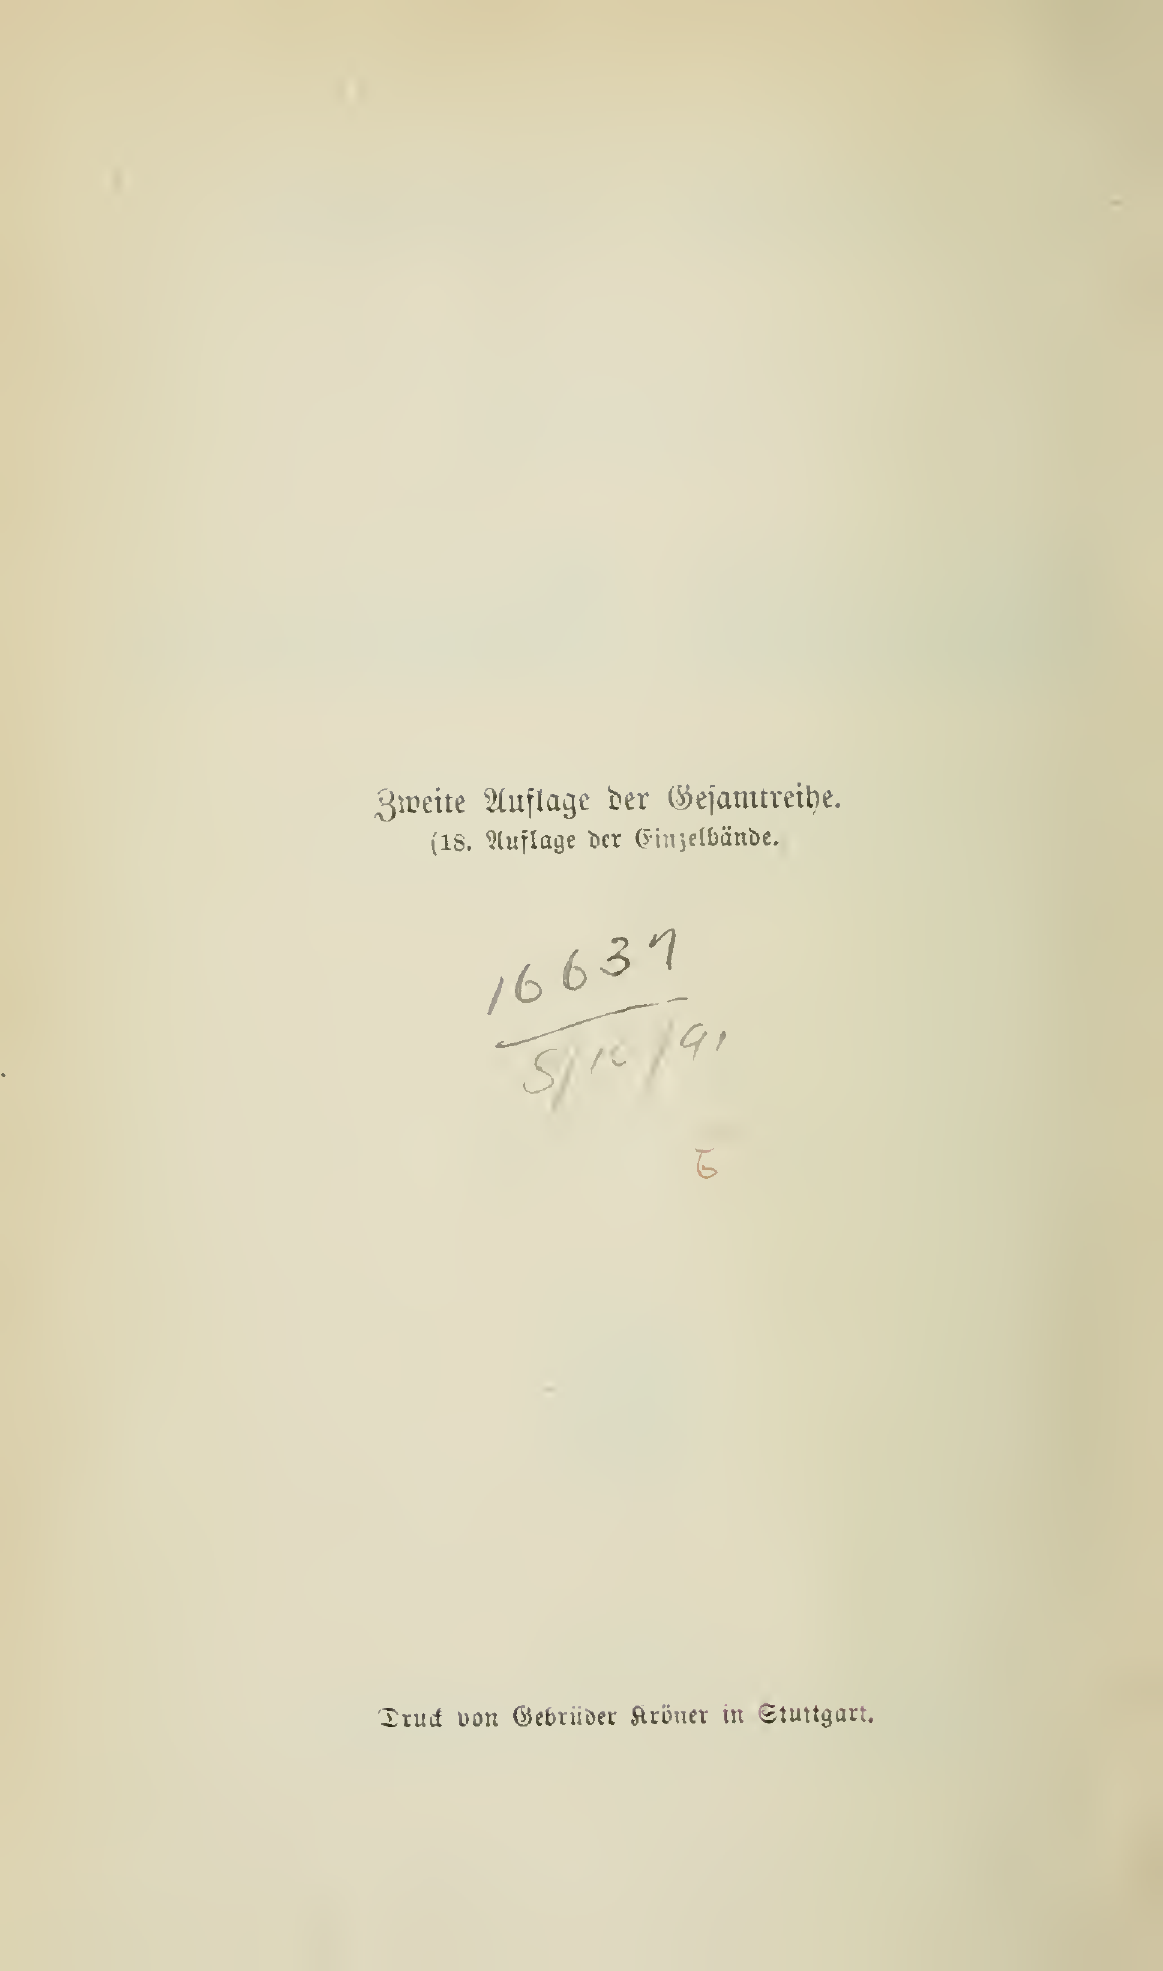 Zweite Auflage der Gesamtreihe.
(18. Auflage der Einzelbände.
16637
5/10/91
5
Druck von Gebrüder Kröner in Stuttgart.